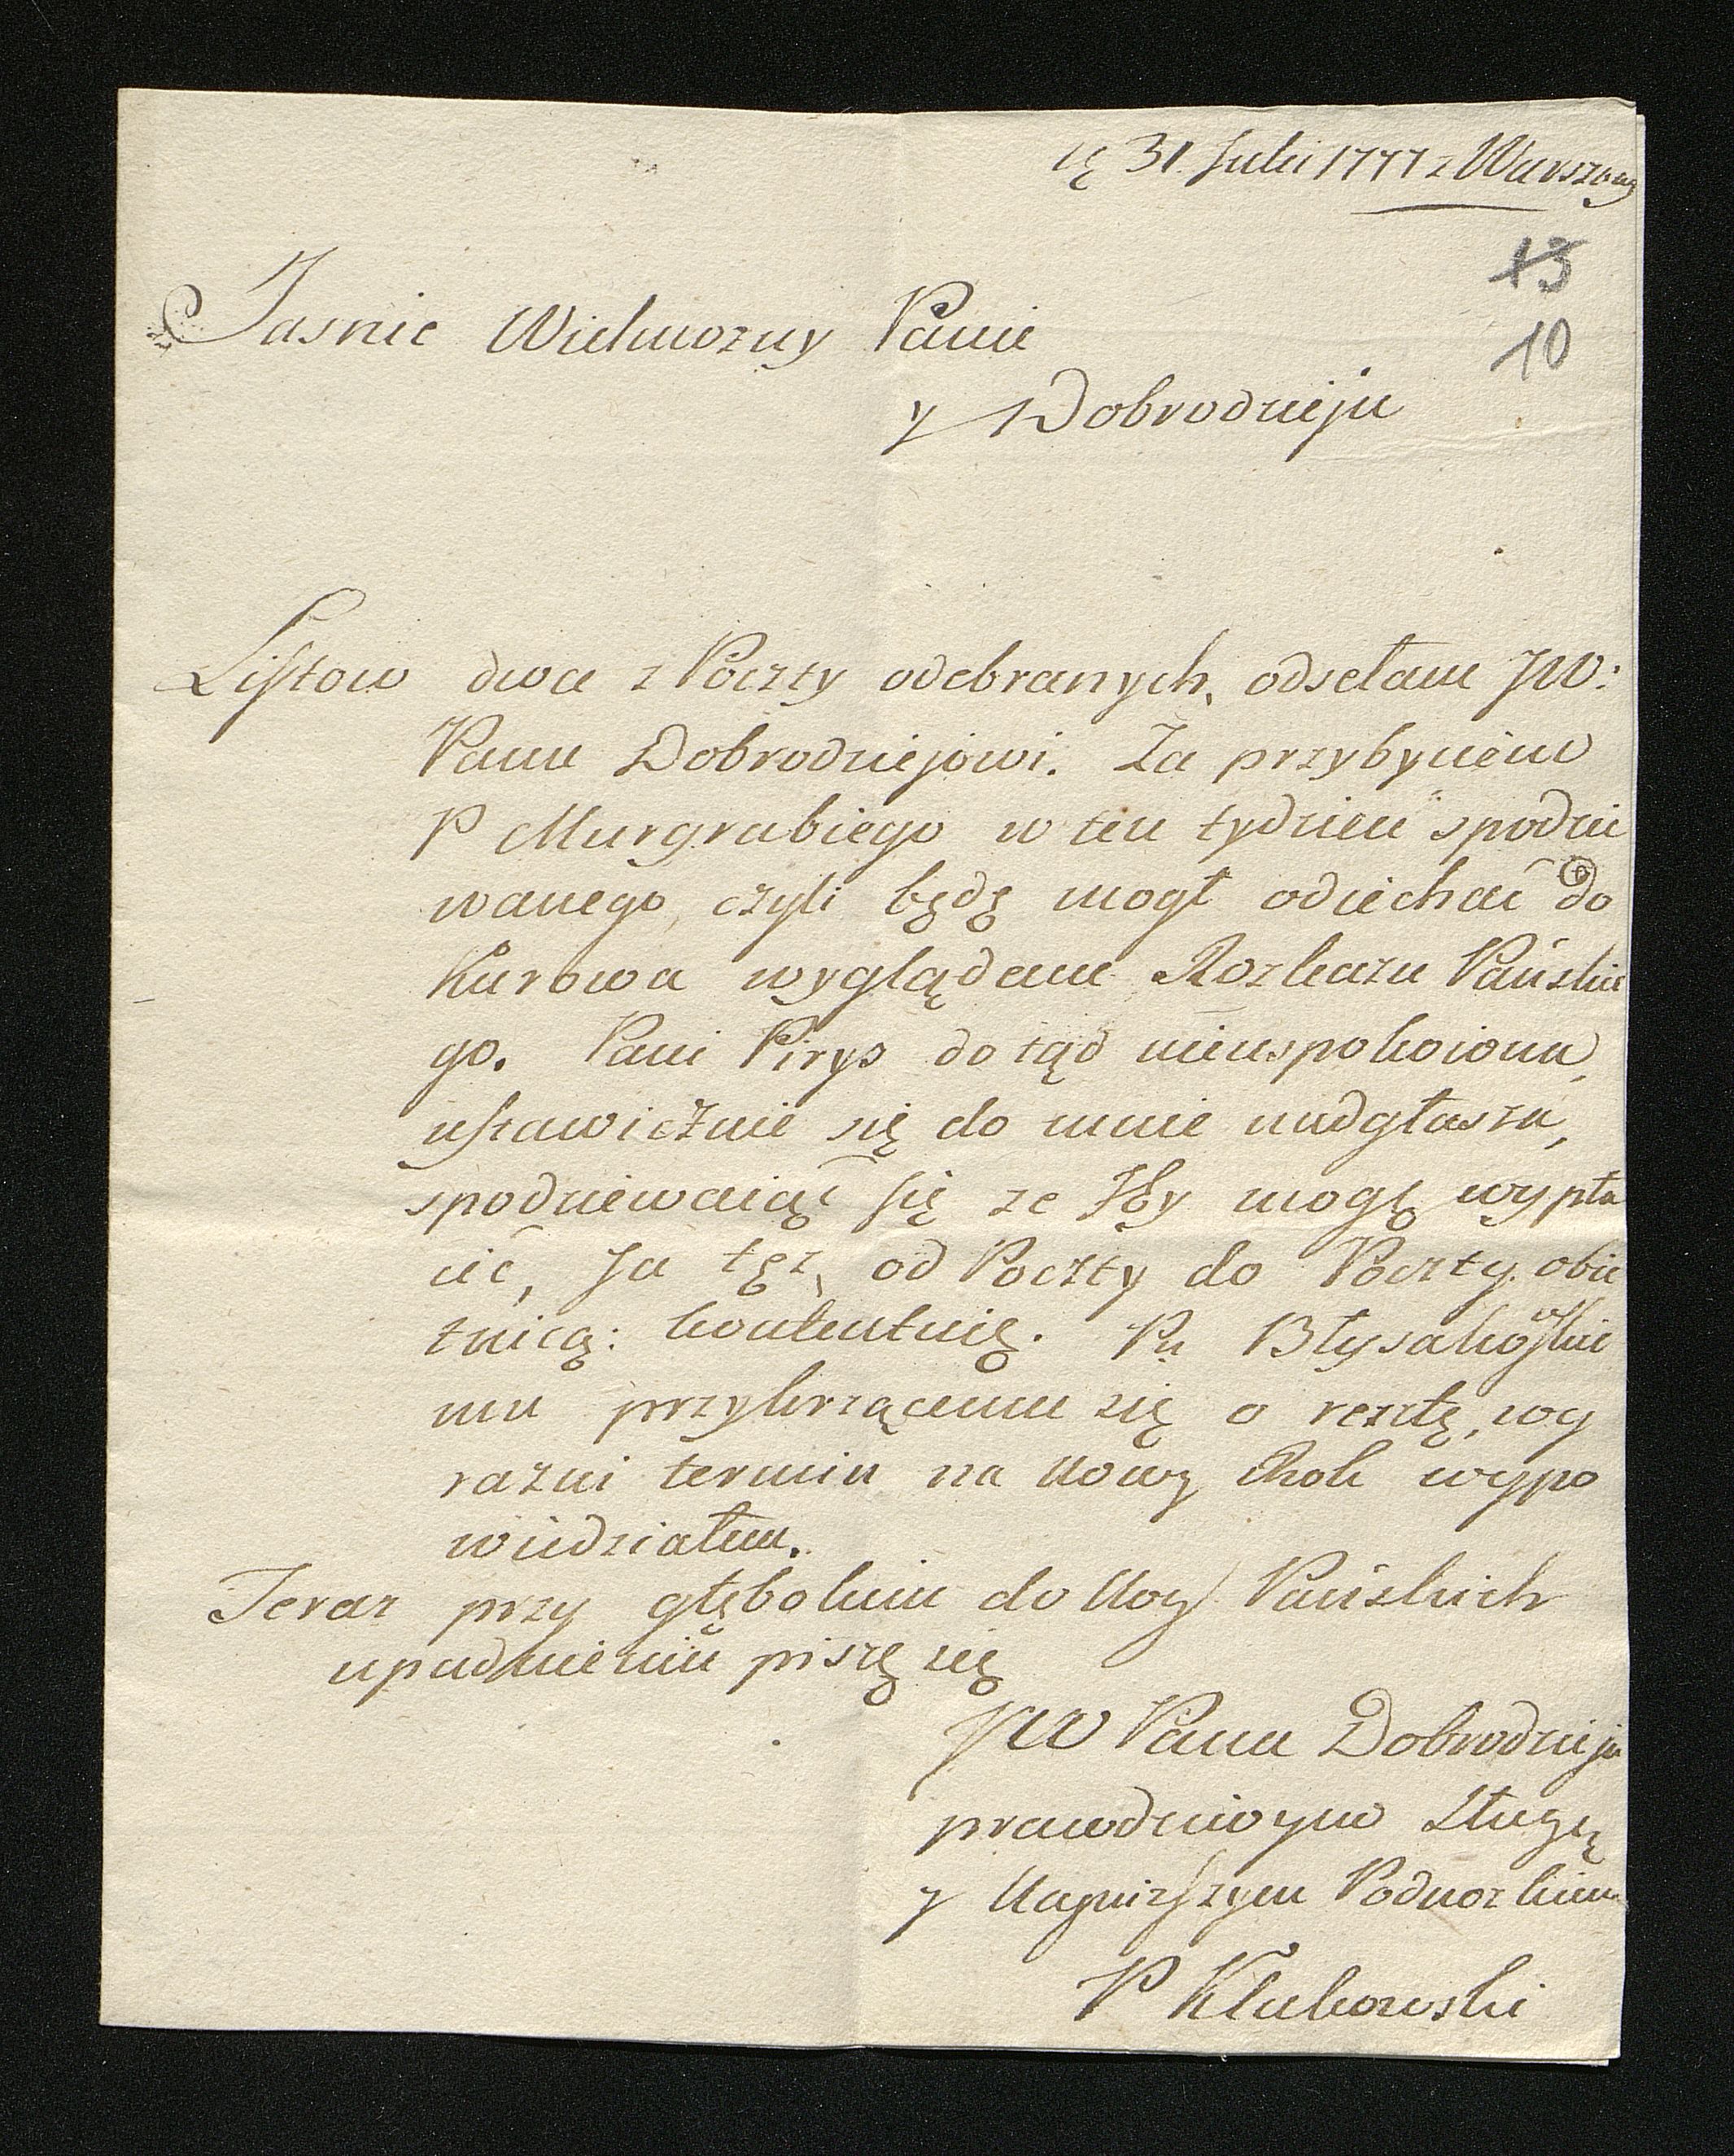 31. Julii 1777 z Warszawy
13
10
Jasnie Wielmozny Panie
y Dobrodzieju
Listow dwa z Poczty odebranych, odsełam JW:
Panu Dobrodziejowi. Za przybyciem
P Murgrabiego w ten tydzień spodzie
wanego, czyli będę mogł odiechać do
Kurowa wyglądam Rozkazu Pańskie
go. Pani Pirys do tąd nieuspokoiona,
ustawicznie się do mnie nadgłasza,
spodziewaiąć się ze mogę wypła
cić, Ja tęz, od Poczty do Poczty obie
tnicą: kontentuię. Pu
mu przykrzącemu się o resztę, wy
razni termin na Nowy Rok wypo
wiedziałem.
Teraz przy głębokim do Nog Pańskich
upadnieniu piszę się
JW Pana Dobrodzieja
prawdziwym Sługą
y Nayniższym Podnozkiem
P Klukowski